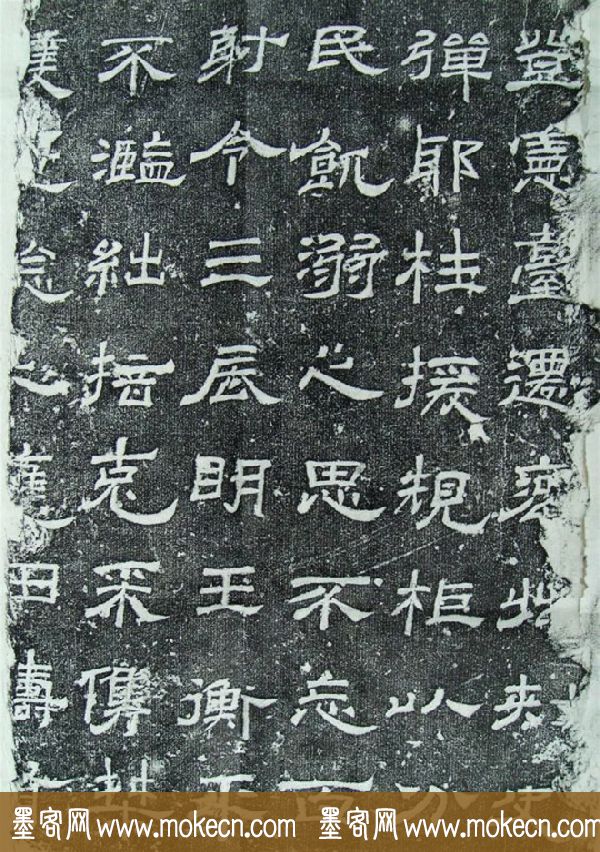 登憲臺遷兗州刾
彈耶枉援規柜以方
民飢溺之思不忘百
射令三辰明王衡平
不濫絀掊克采儁桀
念之壽
墨客网 www.mokecn.com 墨客网 www.mokecn.com